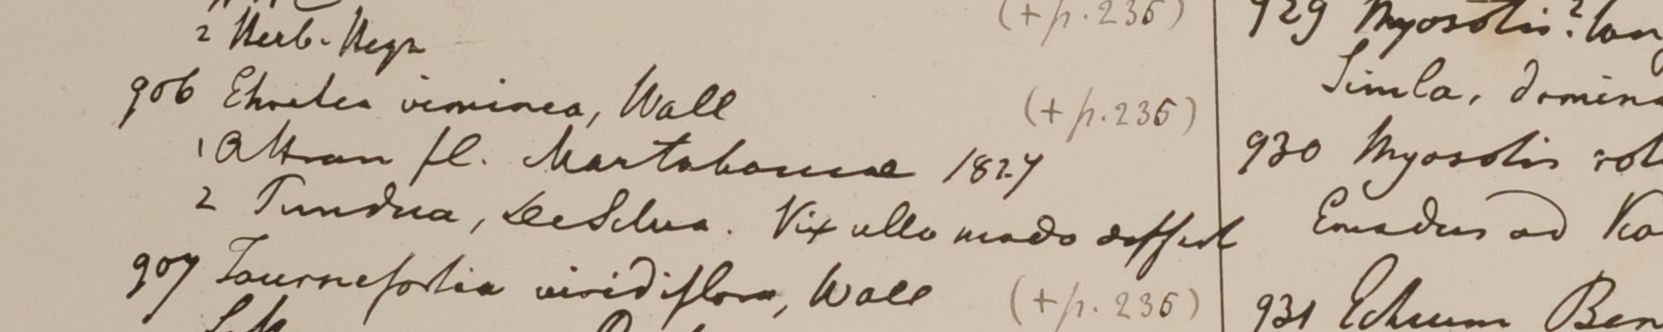 (+ p. 236)
2 Herb. Heyn
906 Ehretia viminea, Wall (+ p. 236)
1 Attran fl. Martabaniae 1827
2 Tundua, De Silva. Vix ullo modo differt
907 Tournefortia viridiflora, Wall (+ p. 236)
929 Myosotis?
Simla,
930 Myosotis
Emodus ad
931 Echium